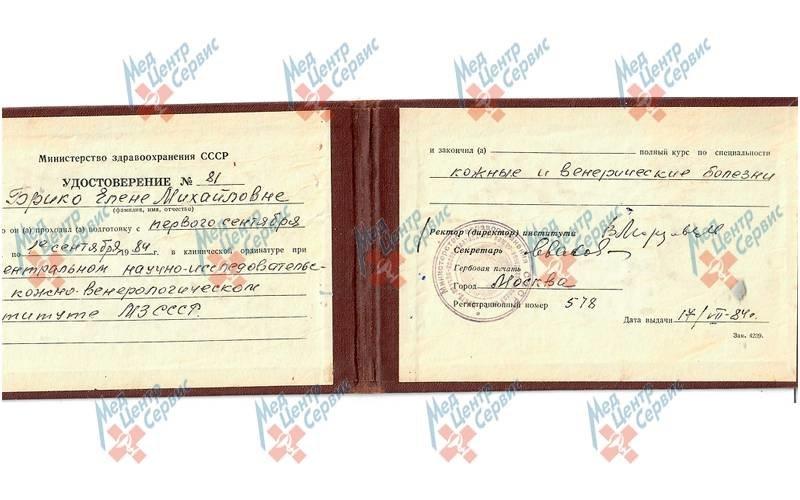 Министерство здравоохранения СССР
УДОСТОВЕРЕНИЕ № 81
Брико Елене Михайловне
(фамилия, имя, отчество)
о он (а) проходил (а) подготовку с первого сентября
по 1 сентября 84 г. в клинической ординатуре при
ентральном научно-исследовательс-
кожно-венерологическом
ституте МЗ СССР.
и закончил (а) полный курс по специальности
кожные и венерические болезни
Ректор (директор) института
Секретарь
Гербовая печать
Город Москва
Регистрационный номер 578
Дата выдачи 17/VII-84г.
Зак. 4239.
Мед Центр Сервис